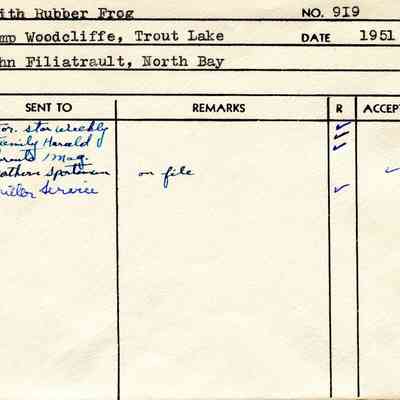 ith Rubber Frog NO. 919
mp Woodcliffe, Trout Lake DATE 1951
hn Filiatrault, North Bay
SENT TO REMARKS R ACCEPT
tor. star weekly ✓
Family Herald ✓
arents' Mag. ✓
orthern Sportsman on file ✓
Service ✓